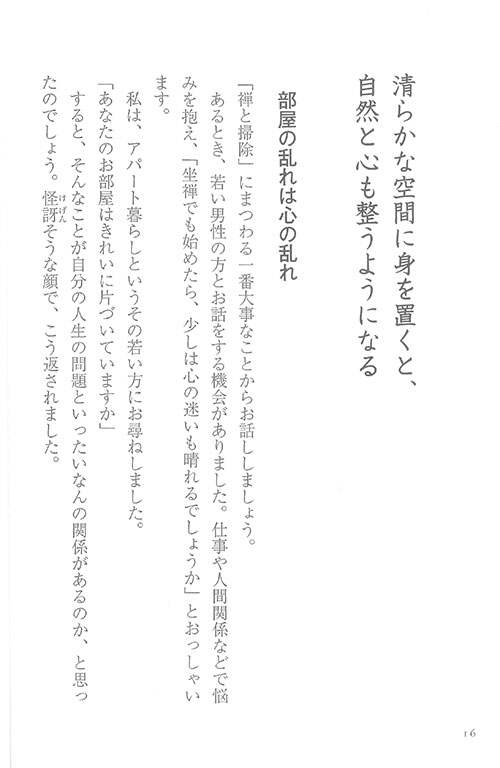 清らかな空間に身を置くと、
自然と心も整うようになる
部屋の乱れは心の乱れ
「禅と掃除」にまつわる一番大事なことからお話ししましょう。
あるとき、若い男性の方とお話をする機会がありました。仕事や人間関係などで悩
みを抱え、「坐禅でも始めたら、少しは心の迷いも晴れるでしょうか」とおっしゃい
ます。
私は、アパート暮らしというその若い方にお尋ねしました。
「あなたのお部屋はきれいに片づいていますか」
すると、そんなことが自分の人生の問題といったいなんの関係があるのか、と思っ
たのでしょう。怪訝そうな顔で、こう返されました。
けげん
16